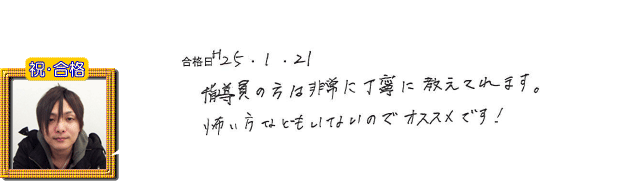 祝・合格
合格日 H25.1.21
指導員の方は非常に丁寧に教えてくれます。
怖い方などもいないのでオススメです!